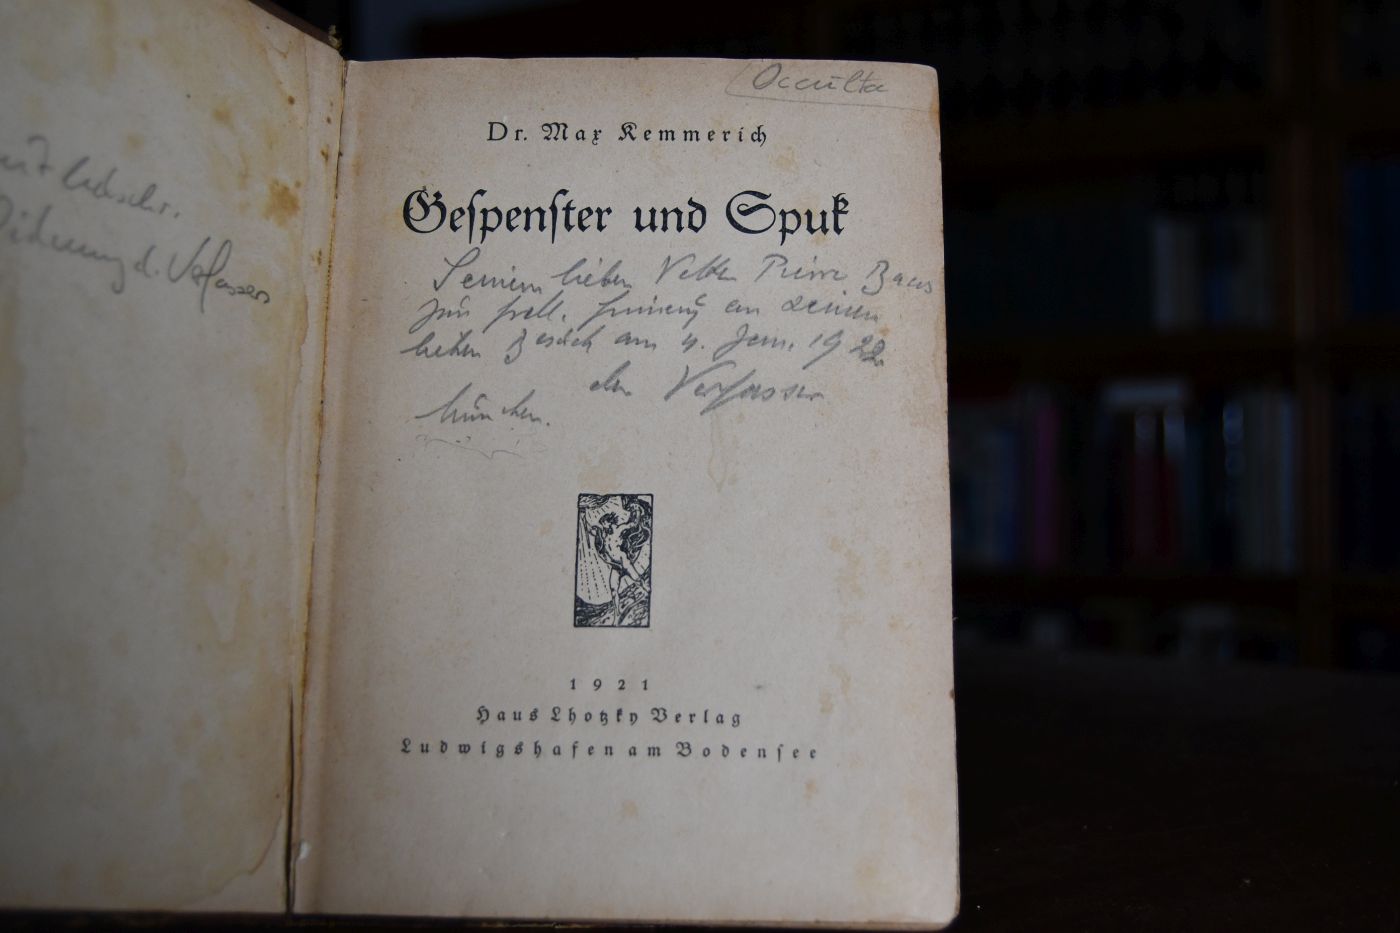 mit hdschr.
Widmung d. Verfassers
Occulta
Dr. Max Kemmerich
Gespenster und Spuk
Seinem lieben Vetter Pierre Baus
zur frdl. Erinnerung an seinen
lieben Besuch am 4. Jan. 1922
der Verfasser
München.
1921
Haus Lhotzky Verlag
Ludwigshafen am Bodensee